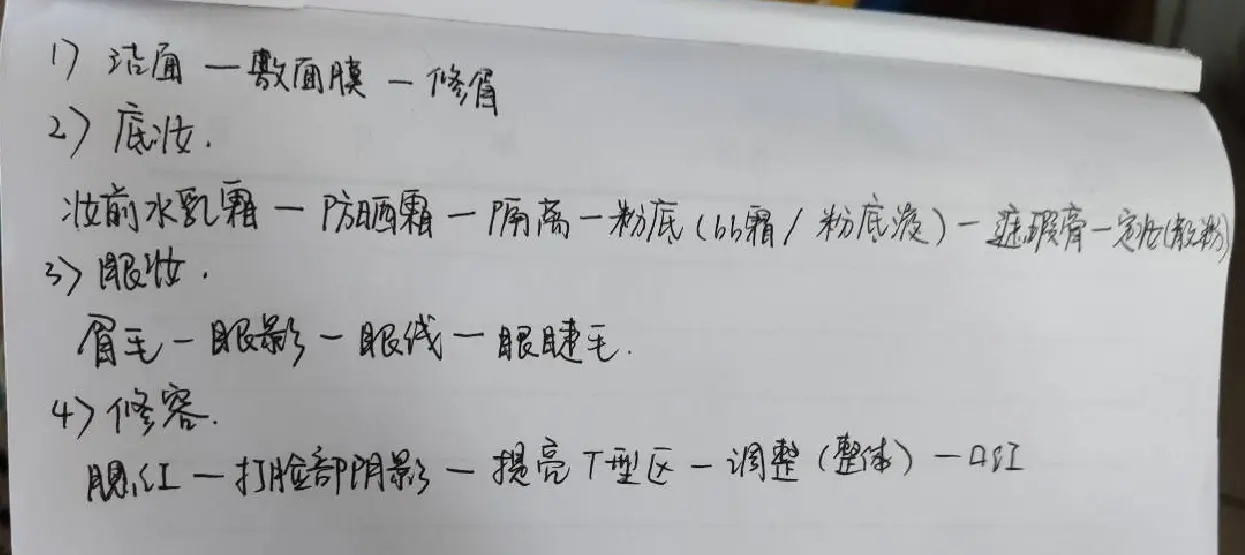 1) 洁面 — 敷面膜 — 修眉
2) 底妆.
妆前水乳霜 — 防晒霜 — 隔离 — 粉底 (bb霜 / 粉底液) — 遮瑕膏 — 定妆(散粉)
3) 眼妆.
眉毛 — 眼影 — 眼线 — 眼睫毛.
4) 修容.
腮红 — 打脸部阴影 — 提亮T型区 — 调整 (整体) — 口红